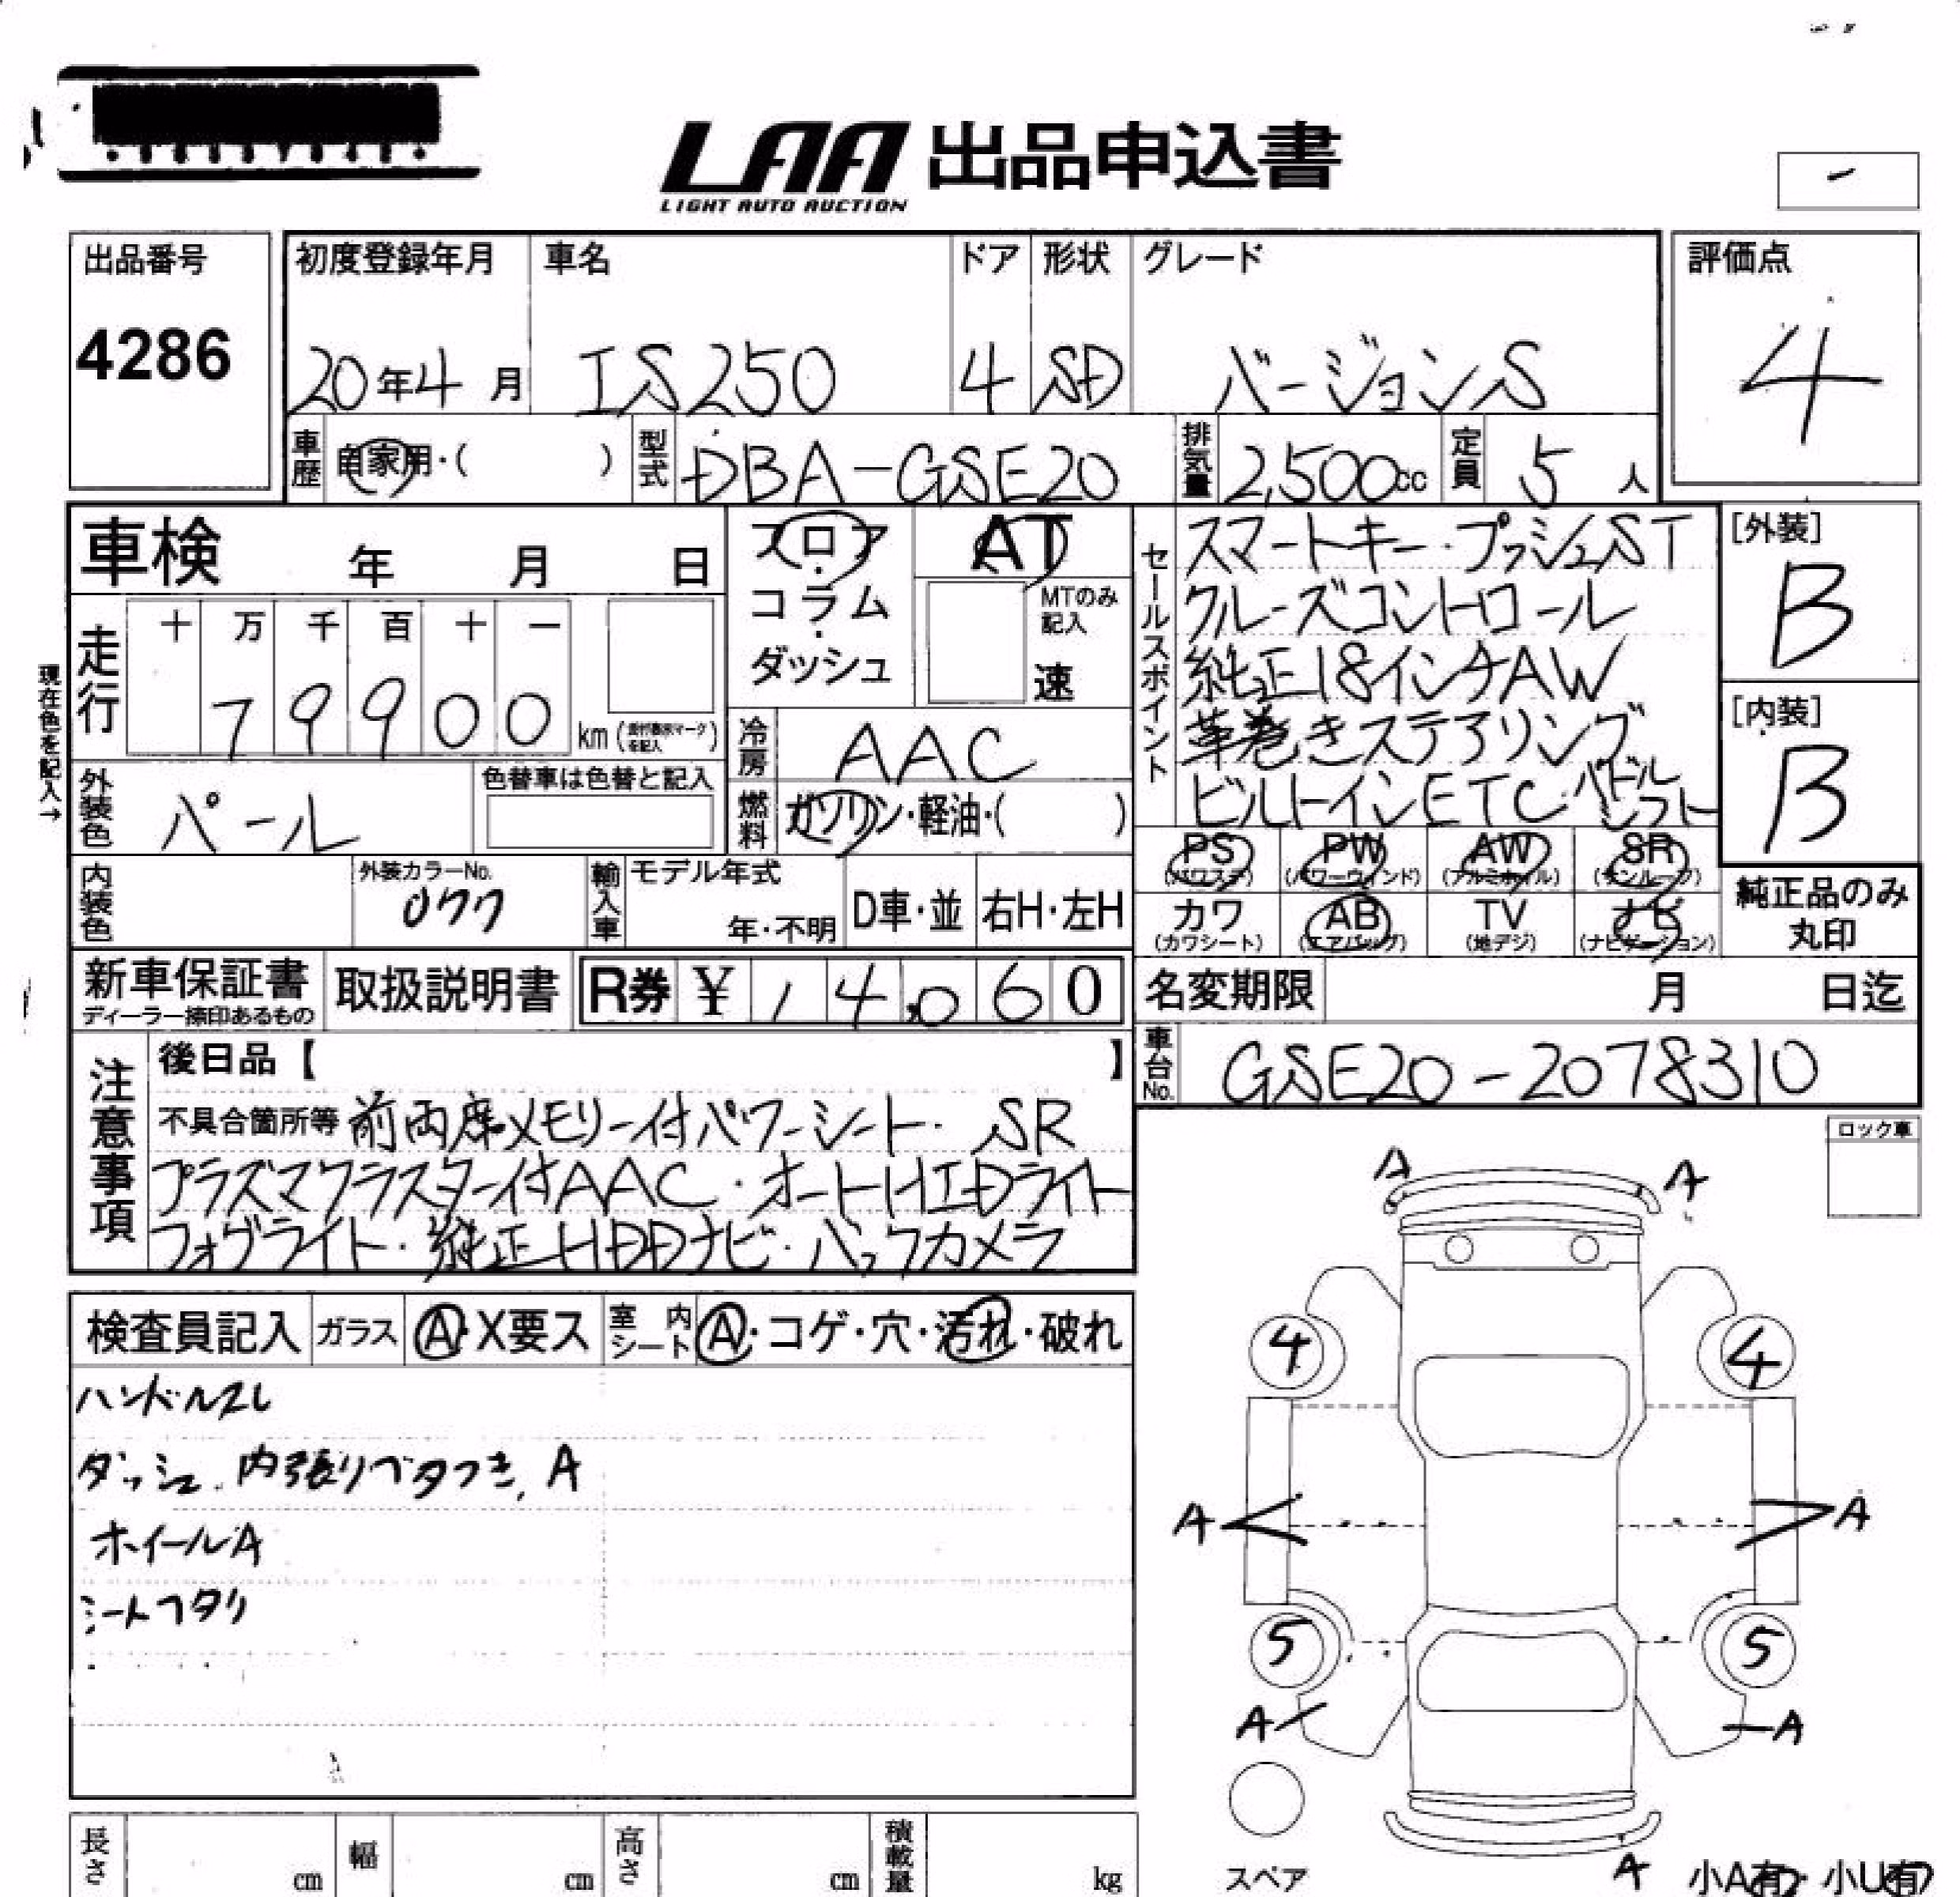 LAA 出品申込書
LIGHT AUTO AUCTION
-
出品番号
4286
初度登録年月 車名 ドア 形状 グレード
20年4月 IS250 4 SD バージョンS
評価点
4
車歴 自家用・( ) 型式 DBA-GSE20 排気量 2,500cc 定員 5人
車検 年 月 日
フロア・コラム・ダッシュ
AT
MTのみ記入
速
セールスポイント
スマートキー・プッシュST
クルーズコントロール
純正18インチAW
革巻きステアリング
ビルトインETC・パドルシフト
[外装]
B
[内装]
B
現在色を記入→
走行 十万千百十一
79900 km
冷房 AAC
外装色 パール 色替車は色替と記入
燃料 ガソリン・軽油・( )
PS PW AW SR
(パワステ) (パワーウィンド) (アルミホイル) (サンルーフ)
カワ AB TV ナビ
(カワシート) (エアバッグ) (地デジ) (ナビゲーション)
純正品のみ
丸印
内装色 外装カラーNo. 077 輸入車 モデル年式 年・不明 D車・並 右H・左H
新車保証書 取扱説明書 R券 ¥ 14,060
ディーラー捺印あるもの
名変期限 月 日迄
車台No. GSE20-2078310
注意事項
後日品【 】
不具合箇所等 前両席メモリー付パワーシート・SR
プラズマクラスター付AAC・オートHIDライト
フォグライト・純正HDDナビ・バックカメラ
ロック車
検査員記入 ガラス A・X要ス 室内シート A・コゲ・穴・汚れ・破れ
ハンドルスレ
ダッシュ、内張りベタつき、A
ホイールA
シートヘタリ
A A
4 4
A A
5 5
A A
スペア
A
小A有・小U有
長さ cm 幅 cm 高さ cm 積載量 kg